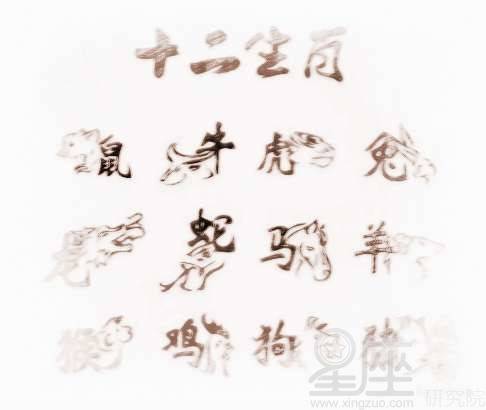 十二生肖
鼠 牛 虎 兔
龙 蛇 马 羊
猴 鸡 狗 猪
星座
www.xingzuo.com 研究院